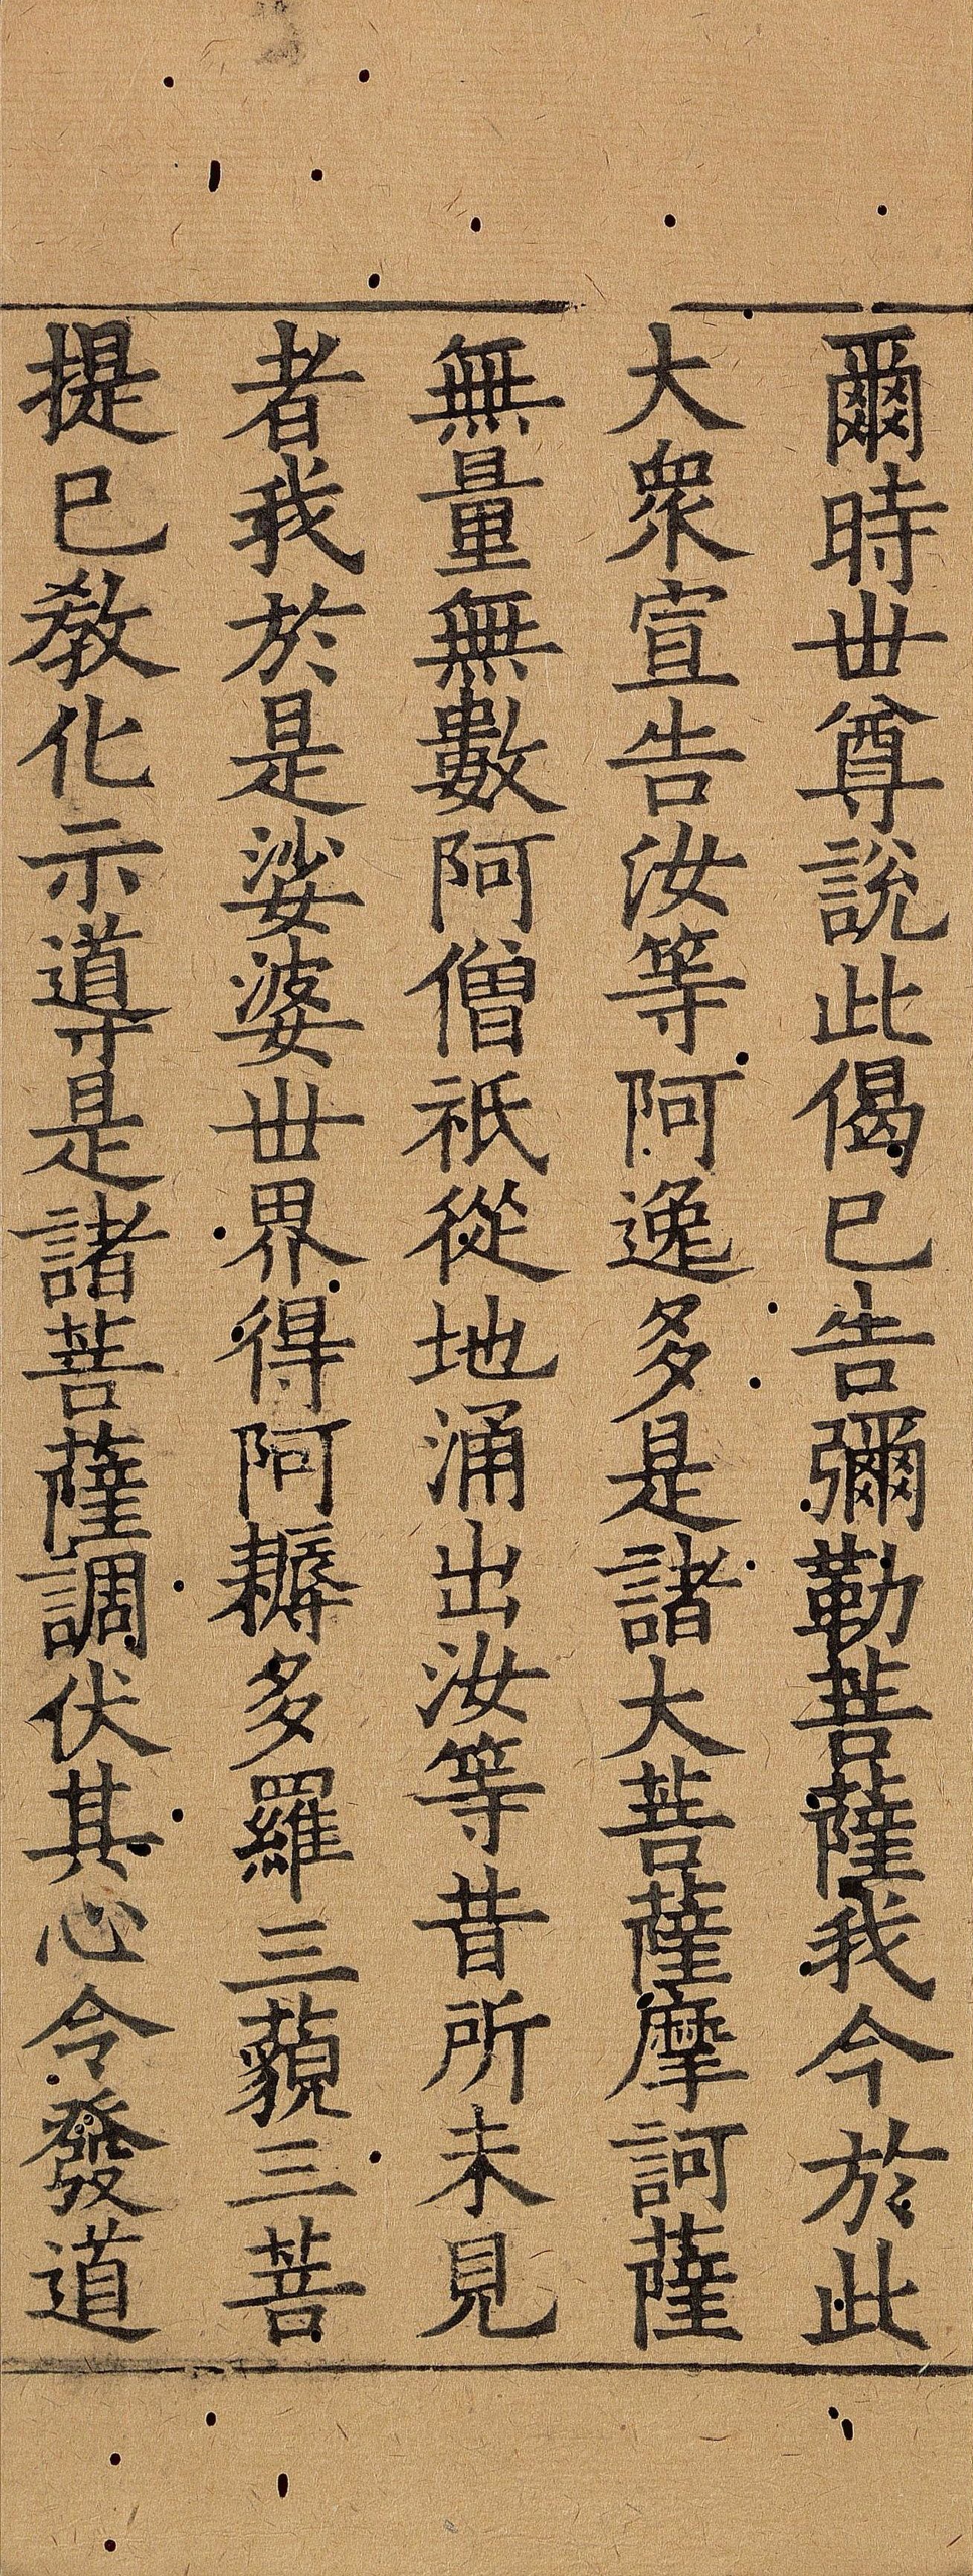 爾時世尊說此偈已告彌勒菩薩我今於此
大眾宣告汝等阿逸多是諸大菩薩摩訶薩
無量無數阿僧祇從地涌出汝等昔所未見
者我於是娑婆世界得阿耨多羅三藐三菩
提已教化示導是諸菩薩調伏其心令發道